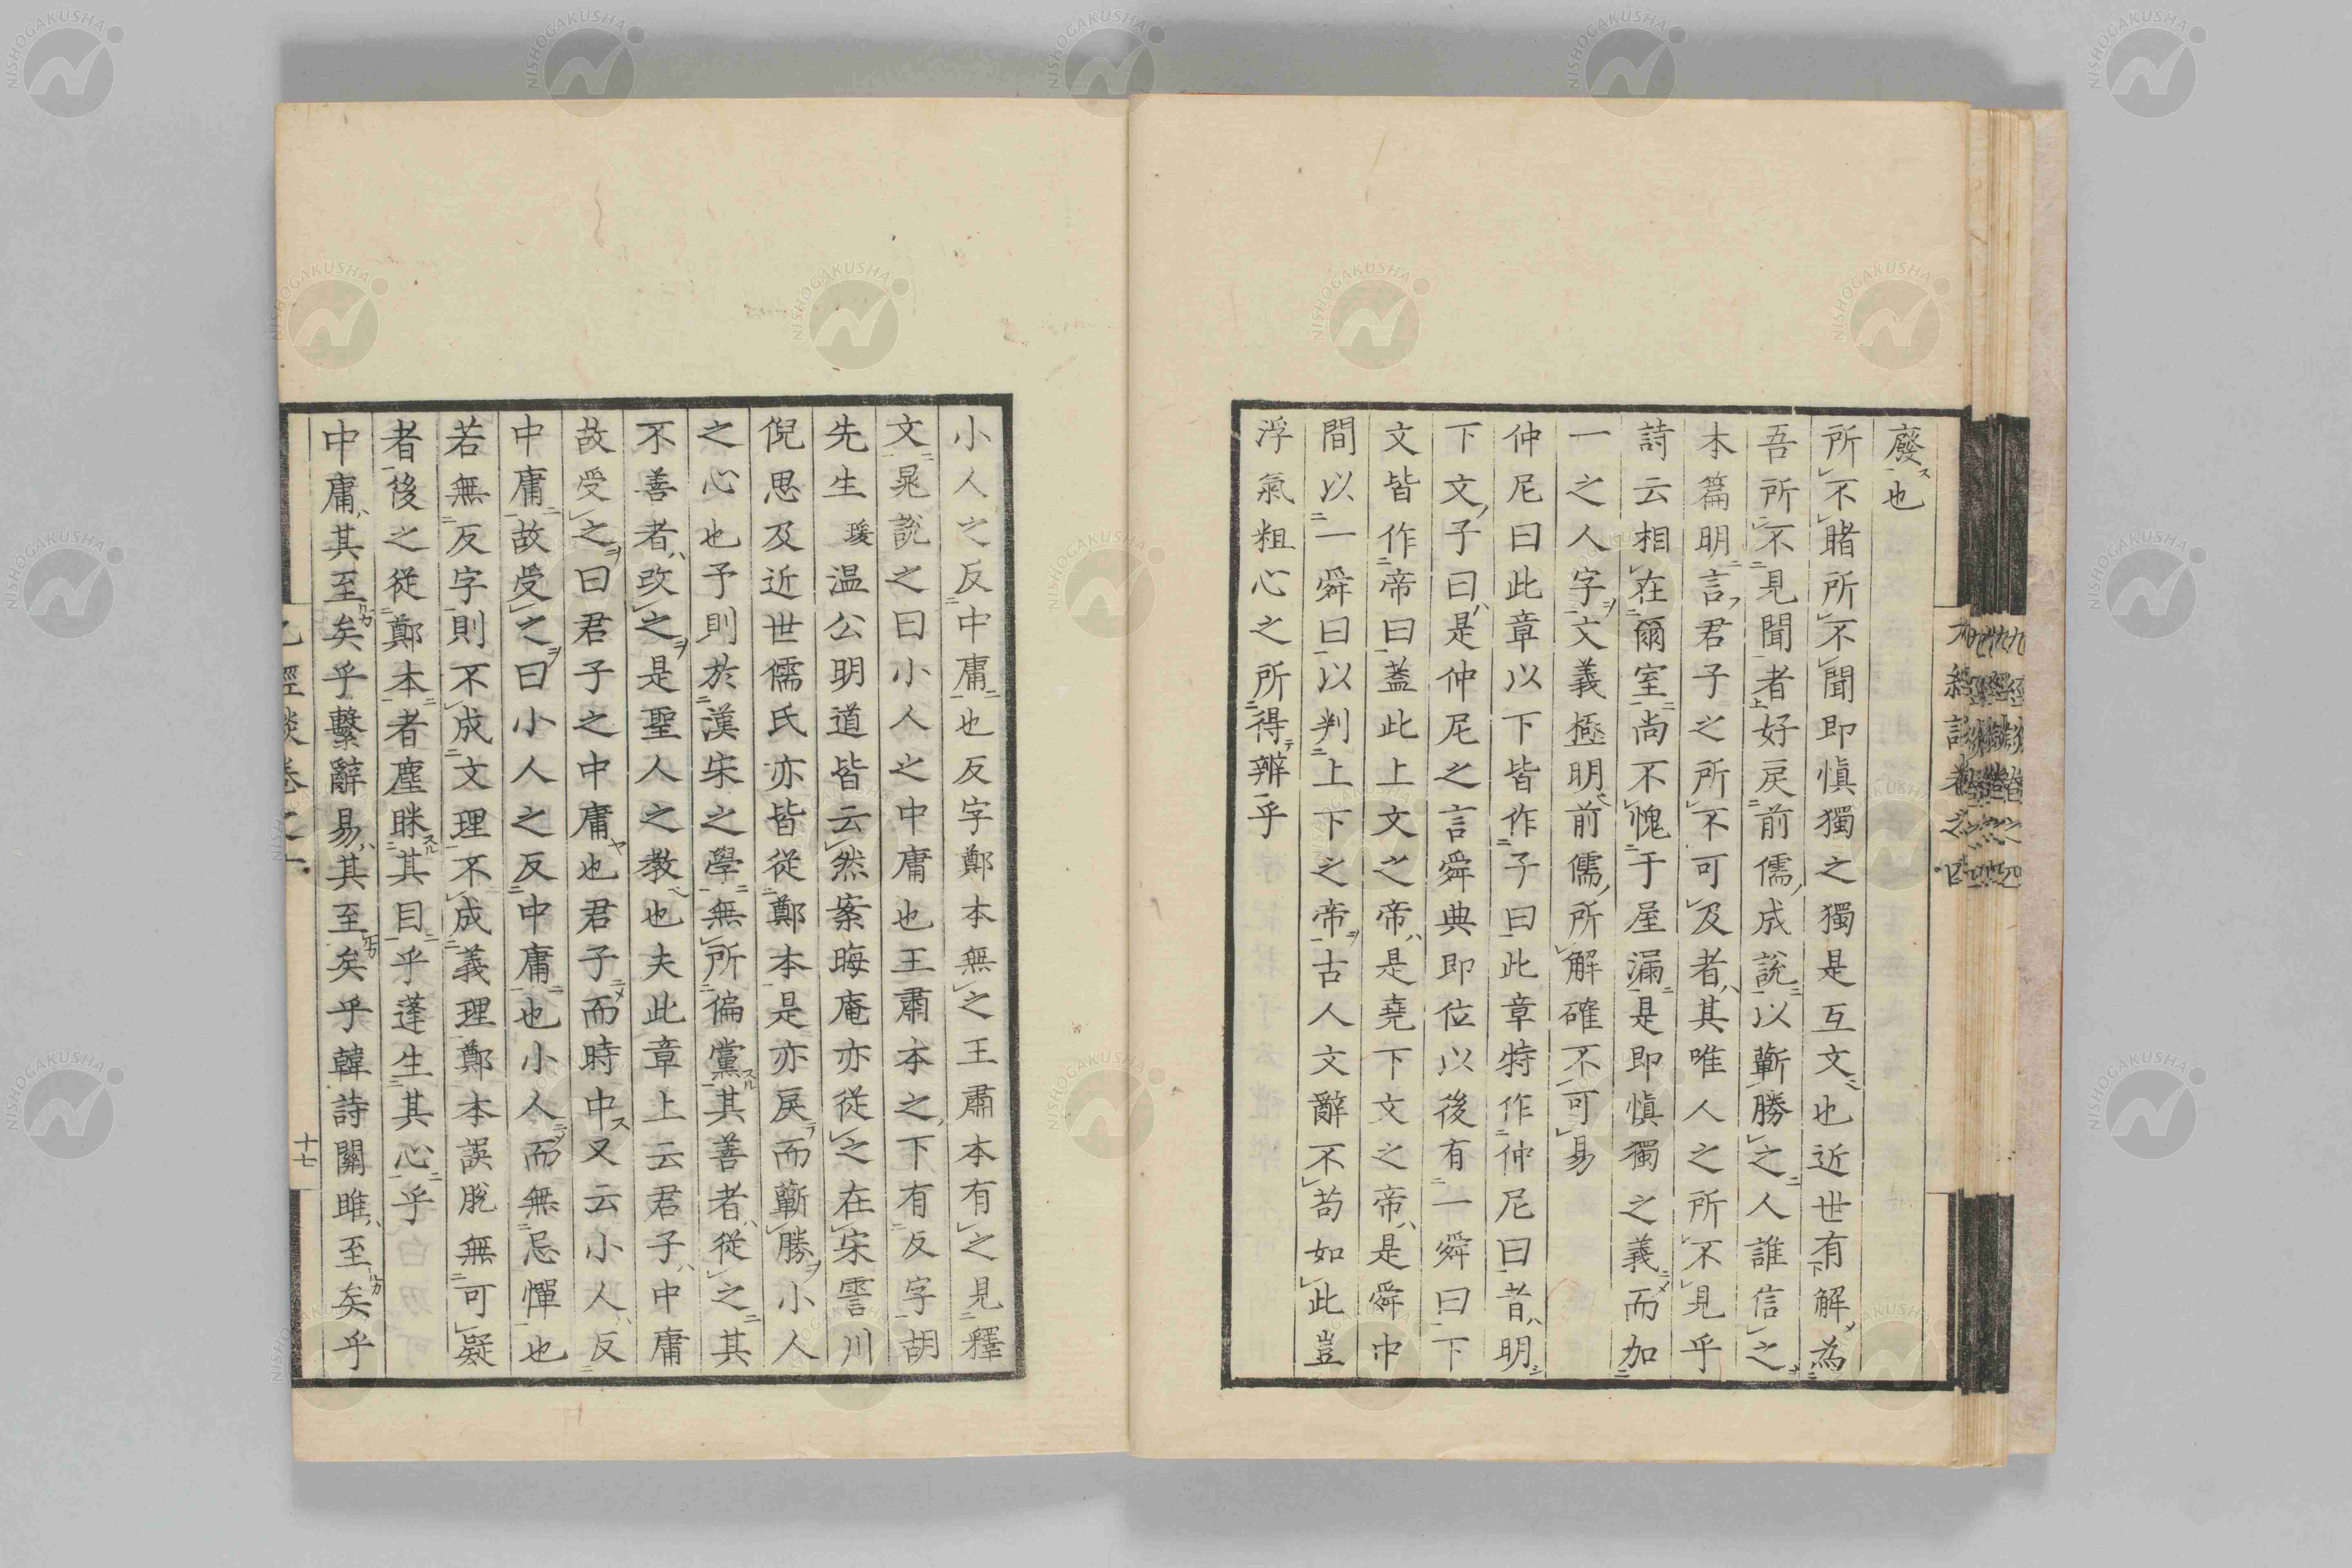 廢也
所不睹所不聞即愼獨之獨是互文也近世有解為
吾所不見聞者好戻前儒成說以蘄勝之人誰信之
本篇明言君子之所不可及者其唯人之所不見乎
詩云相在爾室尚不愧于屋漏是即愼獨之義而加
一之人字文義極明前儒所解確不可易
仲尼曰此章以下皆作子曰此章特作仲尼曰昔明
下文子曰是仲尼之言舜典即位以後有一舜曰下
文皆作帝曰蓋此上文之帝是堯下文之帝是舜中
間以一舜曰以判上下之帝古人文辭不苟如此豈
浮氣粗心之所得辨乎
小人之反中庸也反字鄭本無之王肅本有之見釋
文晁說之曰小人之中庸也王肅本之下有反字胡
先生瑗温公明道皆云然案晦庵亦從之在宋霅川
倪思及近世儒氏亦皆從鄭本是亦戻而蘄勝小人
之心也予則於漢宋之學無所偏黨其善者從之其
不善者改之是聖人之教也夫此章上云君子中庸
故受之曰君子之中庸也君子而時中又云小人反
中庸故受之曰小人之反中庸也小人而無忌憚也
若無反字則不成文理不成義理鄭本誤脫無可疑
者後之從鄭本者塵眯其目乎蓬生其心乎
中庸其至矣乎繫辭易其至矣乎韓詩關雎至矣乎
十七
NISHOGAKUSHA